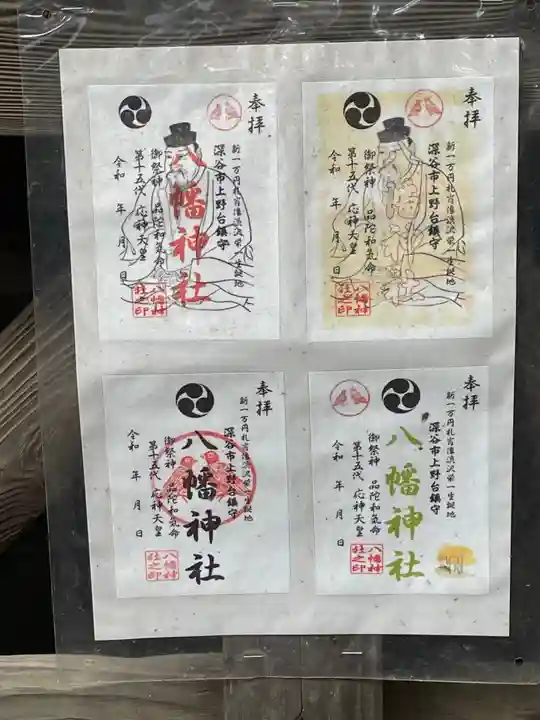 奉拝
新一万円札肖像渋沢栄一生誕地
深谷市上野台鎮守
八幡神社
御祭神 品陀和気命
第十五代 応神天皇
令和 年 月 日
八幡神社之印
奉拝
新一万円札肖像渋沢栄一生誕地
深谷市上野台鎮守
八幡神社
御祭神 品陀和気命
第十五代 応神天皇
令和 年 月 日
八幡神社之印
奉拝
新一万円札肖像渋沢栄一生誕地
深谷市上野台鎮守
八幡神社
御祭神 品陀和気命
第十五代 応神天皇
令和 年 月 日
八幡神社之印
奉拝
新一万円札肖像渋沢栄一生誕地
深谷市上野台鎮守
八幡神社
御祭神 品陀和気命
第十五代 応神天皇
令和 年 月 日
八幡神社之印